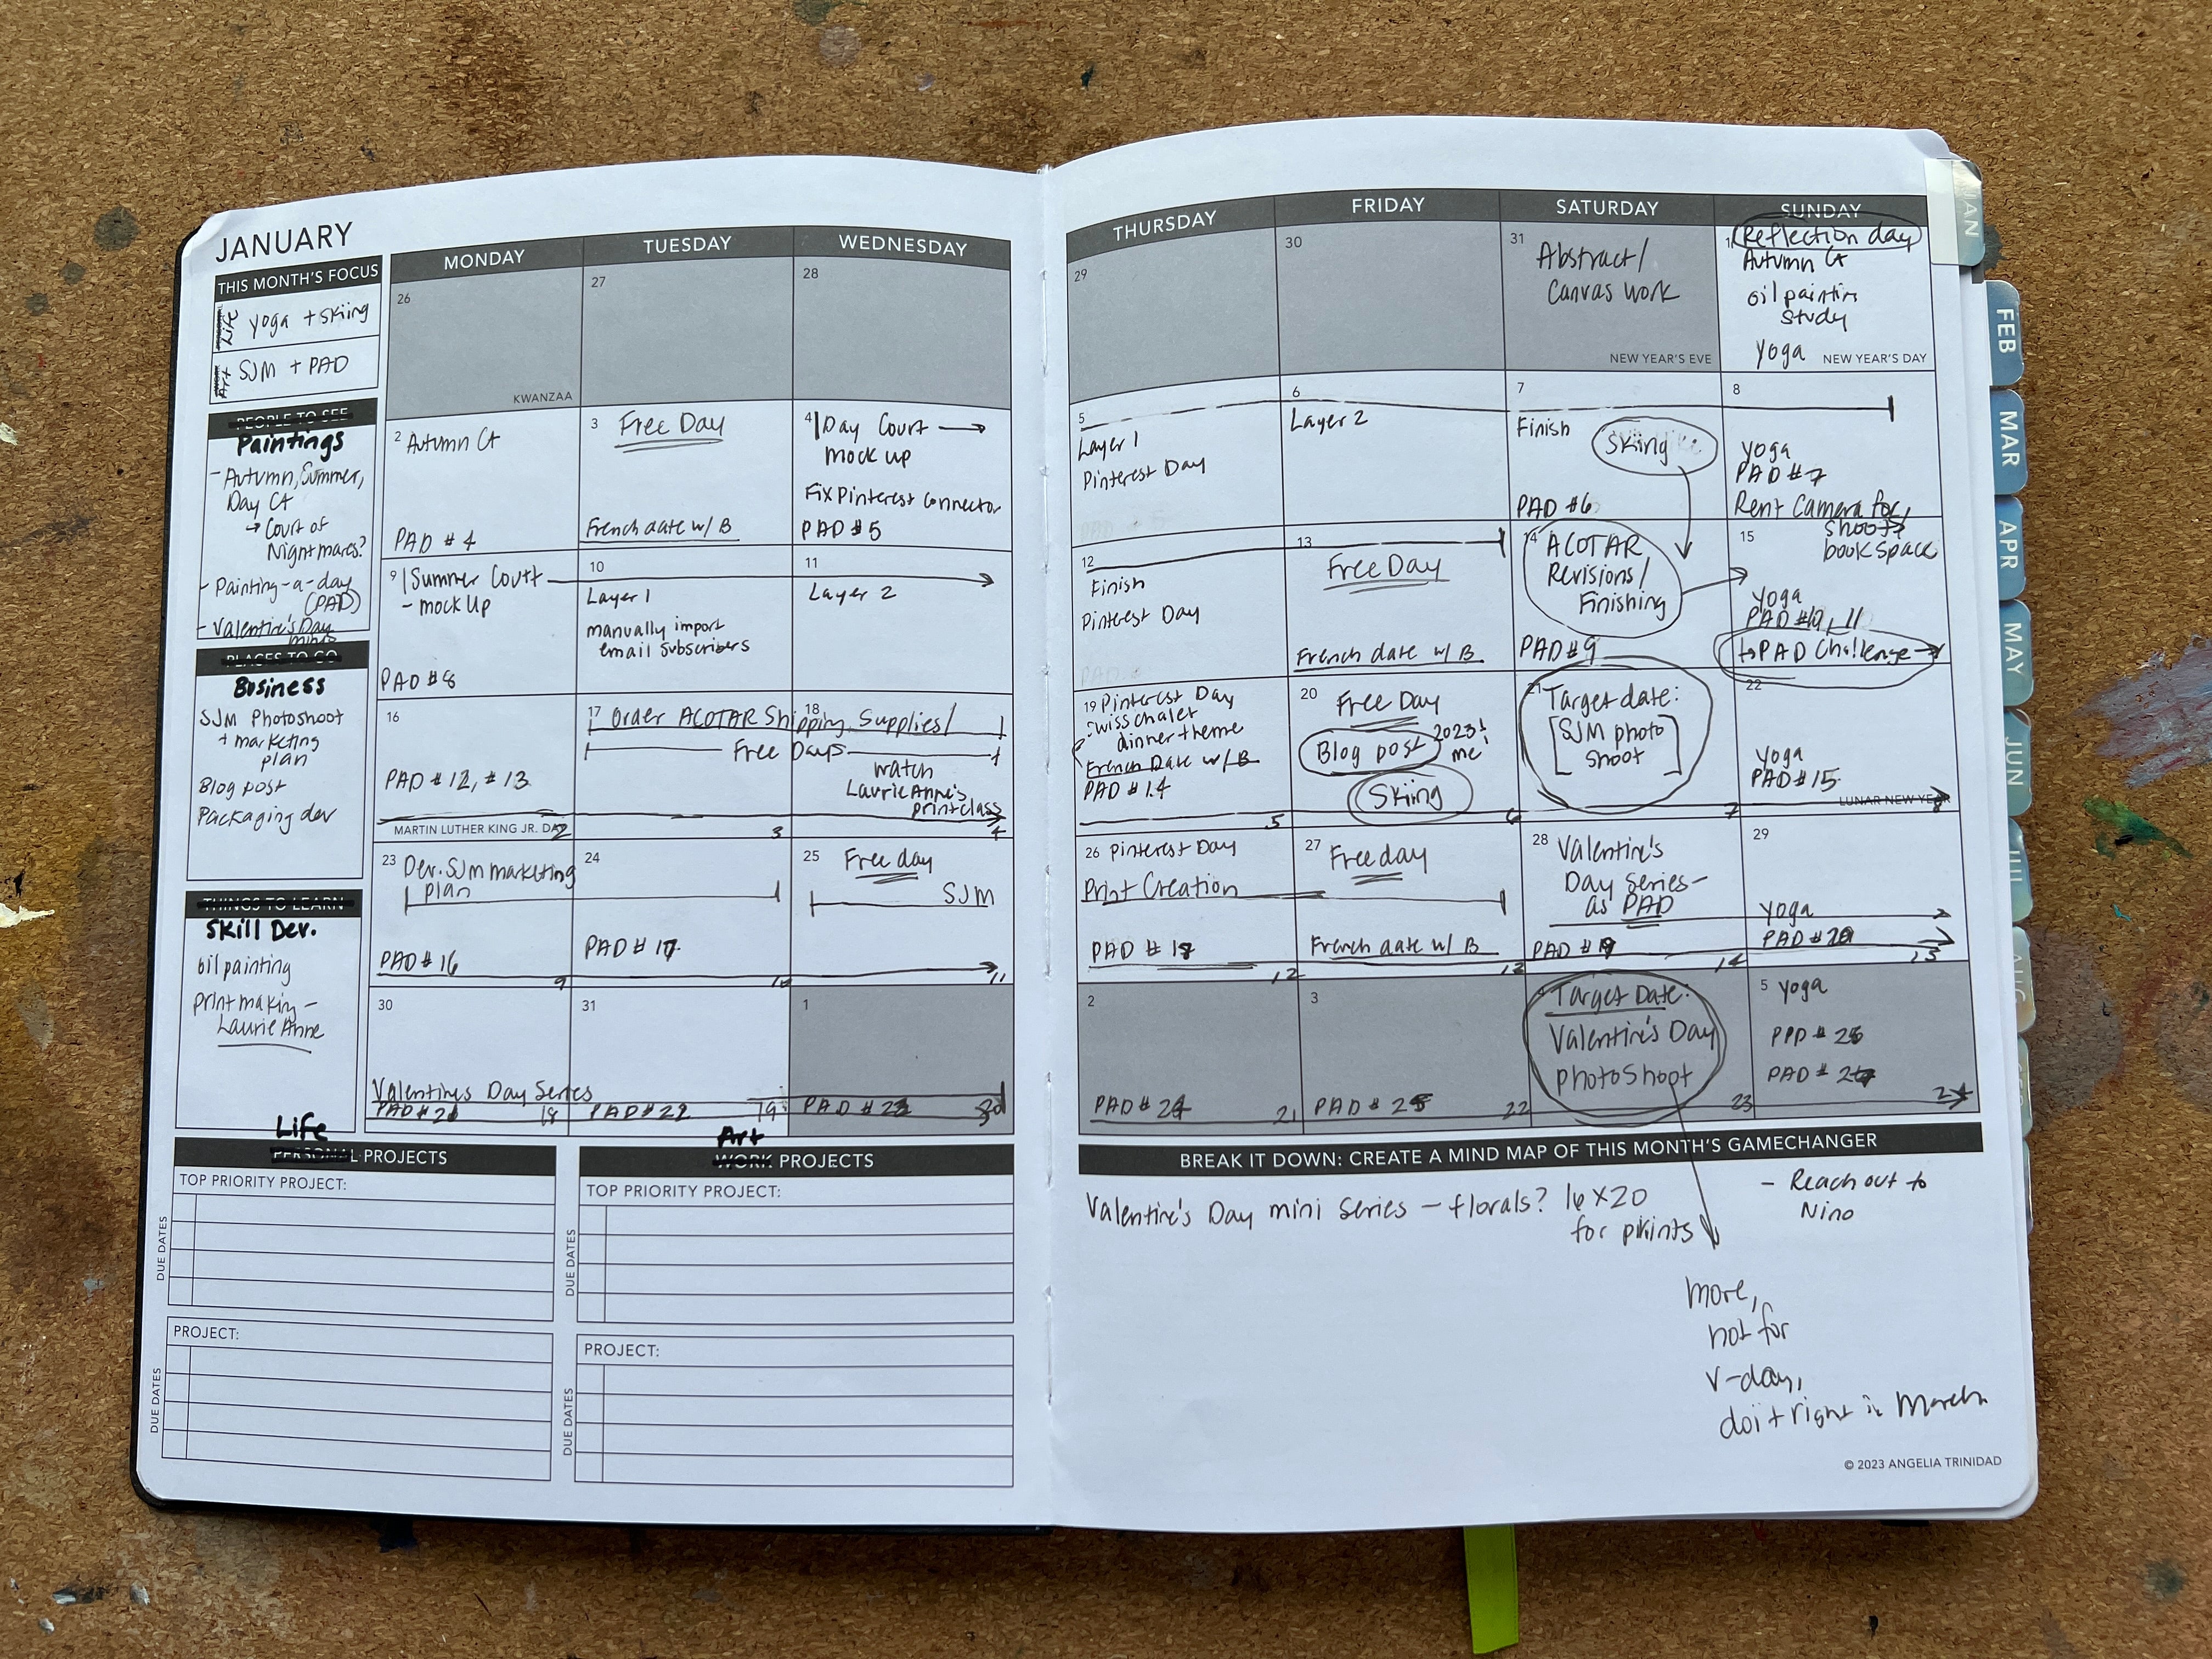 JANUARY
THIS MONTH'S FOCUS
Life
yoga + skiing
Art
SJM + PAD
PEOPLE TO SEE
Paintings
- Autumn, Summer,
Day Ct
→ Court of
Nightmares?
- Painting-a-day
(PAD)
- Valentine's Day
minis
PLACES TO GO
Business
SJM Photoshoot
+ marketing
plan
Blog post
Packaging dev
THINGS TO LEARN
Skill Dev.
oil painting
print making -
Laurie Anne
MONDAY
TUESDAY
WEDNESDAY
THURSDAY
FRIDAY
SATURDAY
SUNDAY
26
KWANZAA
27
28
29
30
31
Abstract/
Canvas work
NEW YEAR'S EVE
1
Reflection day
Autumn Ct
oil paintin
study
yoga
NEW YEAR'S DAY
2
Autumn Ct
PAD #4
3
Free Day
French date w/ B
4
Day Court →
mock up
Fix Pinterest connector
PAD #5
5
Layer 1
Pinterest Day
6
Layer 2
7
Finish
Skiing
PAD #6
8
yoga
PAD #7
Rent Camera for
shoot?
book space
9
Summer Court
- mock up
PAD #8
10
Layer 1
manually import
email subscribers
11
Layer 2
12
Finish
Pinterest Day
13
Free Day
French date w/ B
14
ACOTAR
Revisions/
Finishing
PAD #9
15
yoga
PAD #10, 11
→ PAD Challenge →
16
PAD #12, #13
MARTIN LUTHER KING JR. DAY
2
17
18
Order ACOTAR Shipping Supplies/
Free Days
watch
Laurie Anne's
print class
3
4
19
Pinterest Day
swiss chalet
dinner theme
French Date w/ B
PAD #14
5
20
Free Day
Blog post
2023!
me!
Skiing
6
21
Target date:
[SJM photo
shoot]
7
22
yoga
PAD #15
LUNAR NEW YEAR
8
23
Dev. SJM marketing
plan
PAD #16
9
24
PAD #17
10
25
Free day
SJM
11
26
Pinterest Day
Print Creation
PAD #18
12
27
Free day
French date w/ B
28
Valentine's
Day Series-
as PAD
PAD #19
14
29
yoga
PAD #20
15
30
Valentines Day Series
PAD #21
18
31
PAD #22
19
1
PAD #23
20
2
PAD #24
21
3
PAD #25
22
4
Target Date:
Valentine's Day
photoshoot
23
5
yoga
PAD #26
PAD #27
24
Life
PERSONAL PROJECTS
TOP PRIORITY PROJECT:
DUE DATES
PROJECT:
DUE DATES
Art
WORK PROJECTS
TOP PRIORITY PROJECT:
DUE DATES
PROJECT:
DUE DATES
BREAK IT DOWN: CREATE A MIND MAP OF THIS MONTH'S GAMECHANGER
Valentine's Day mini series - florals? 16x20
for prints
- Reach out to
Nino
more,
not for
v-day,
do it right in March
© 2023 ANGELIA TRINIDAD
JAN
FEB
MAR
APR
MAY
JUN
JUL
AUG